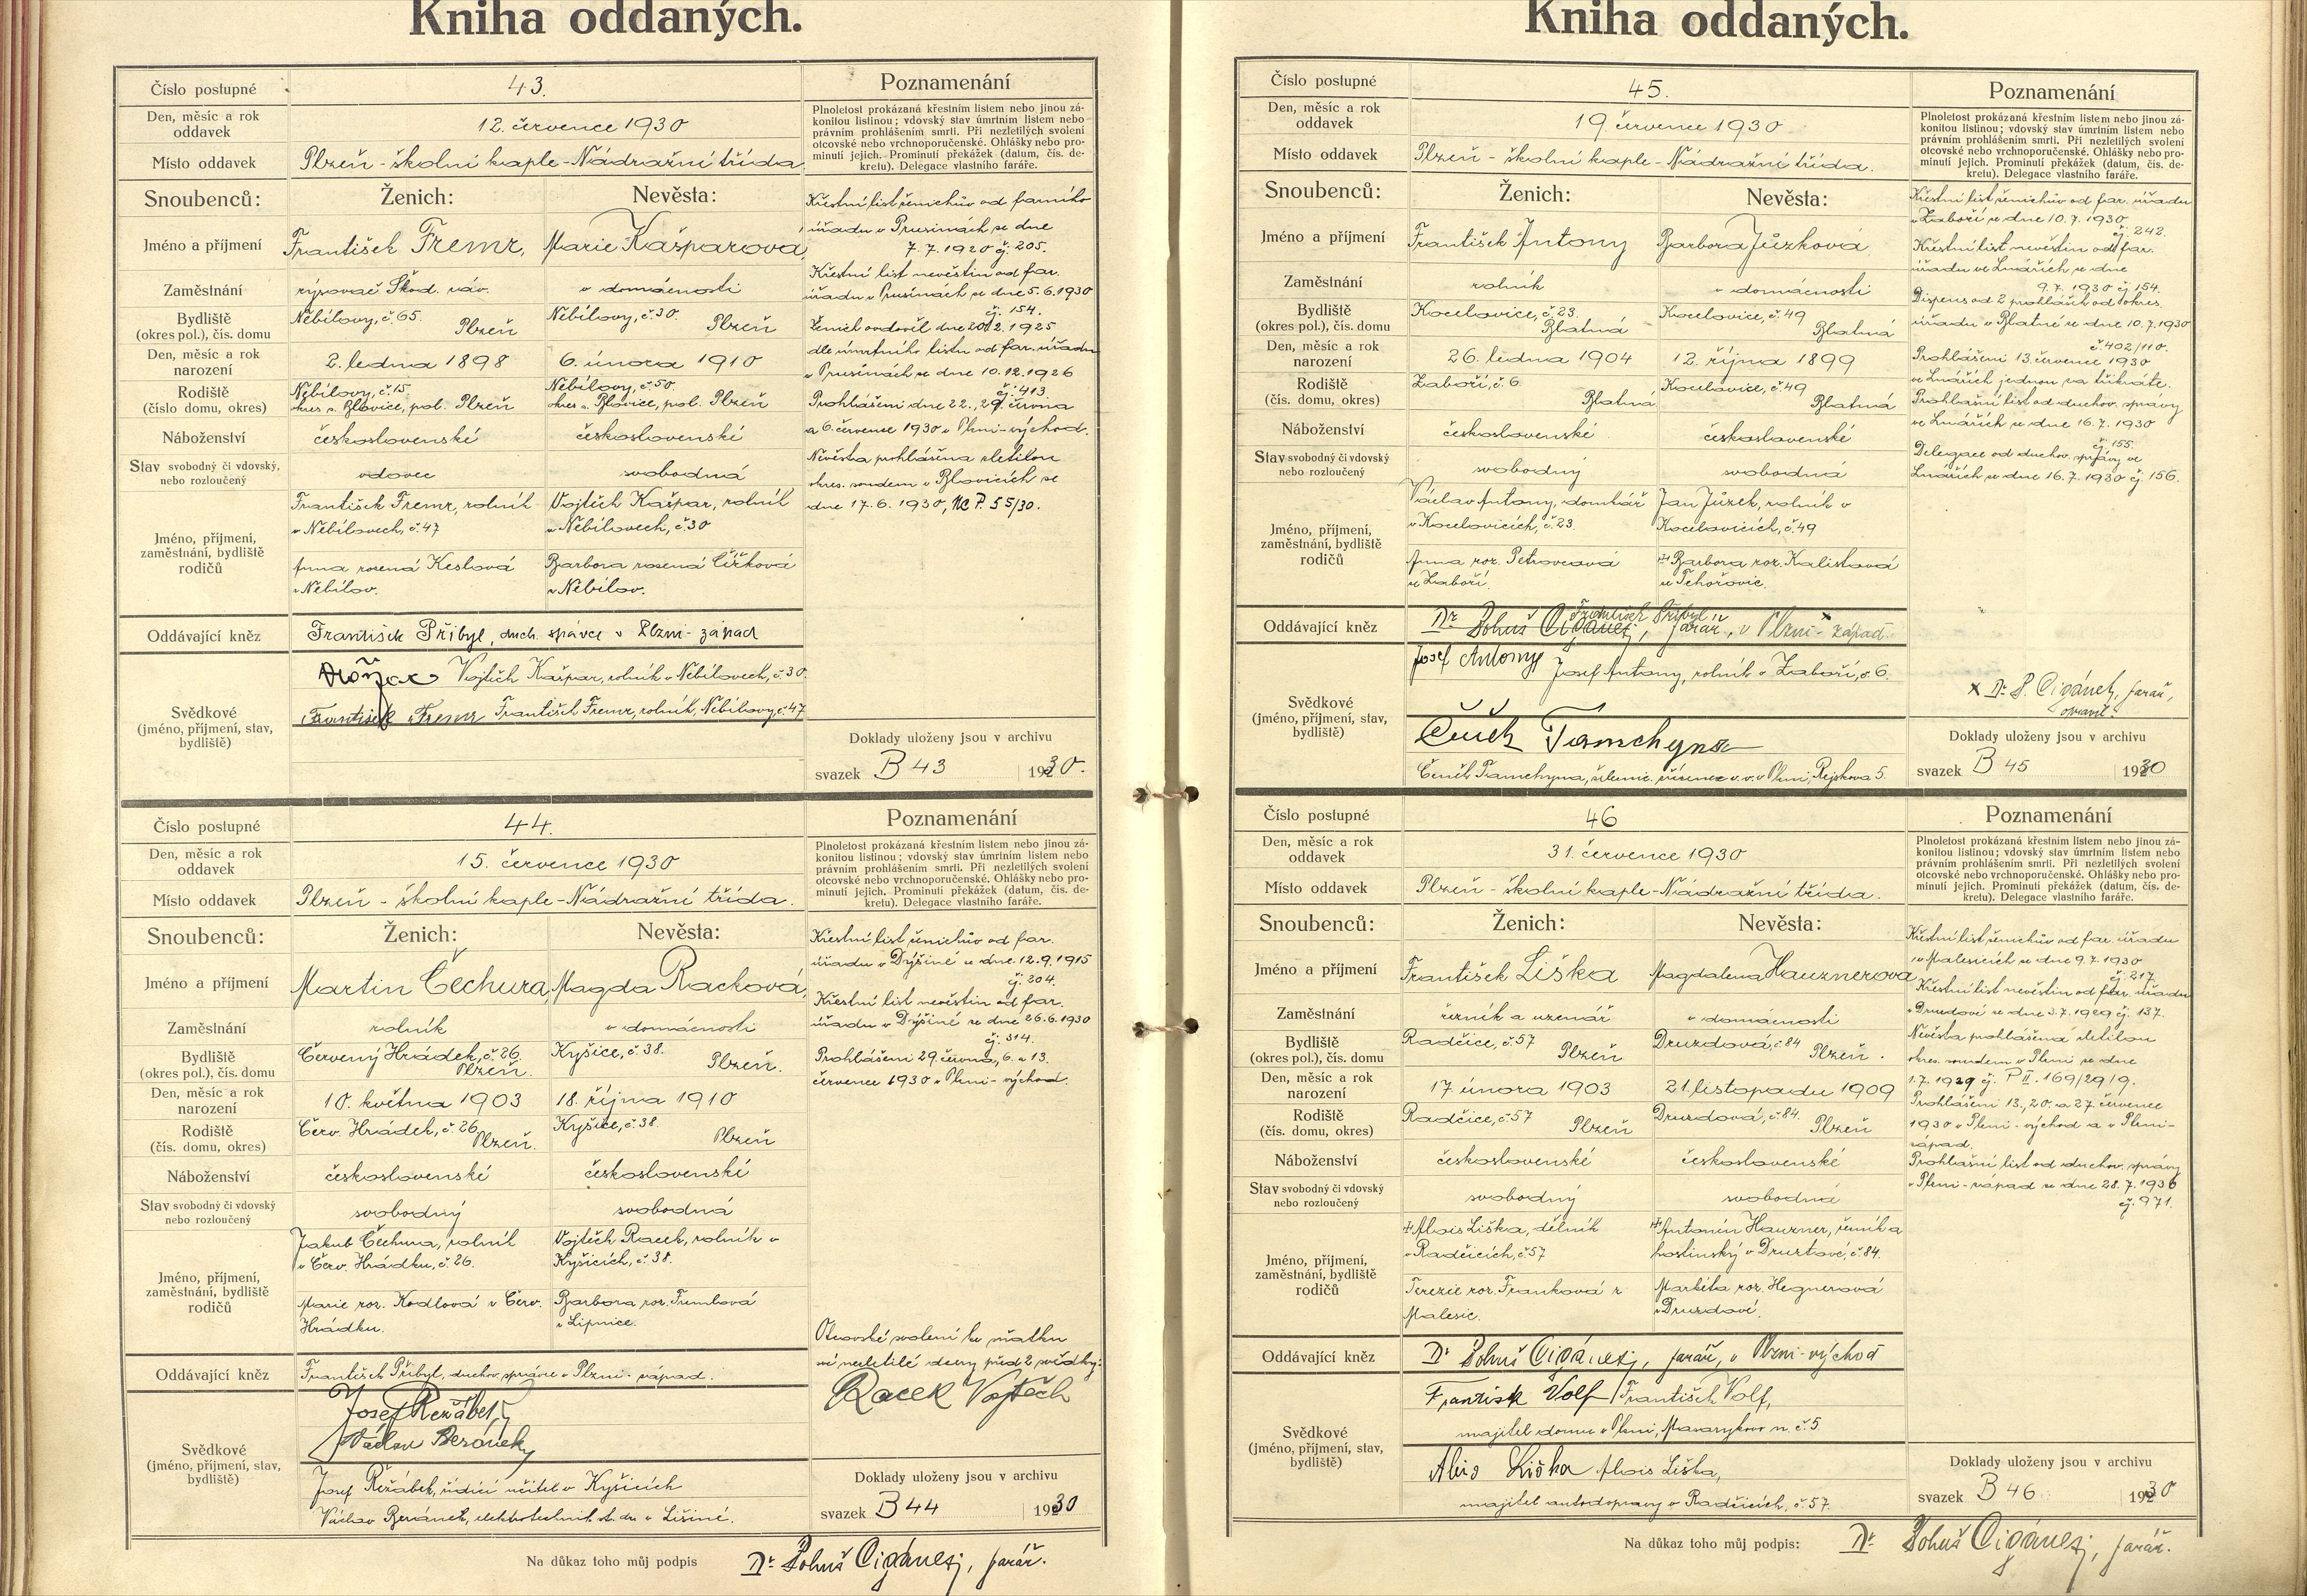 Kniha oddaných.
Číslo postupné 43.
Den, měsíc a rok oddavek 12. července 1930
Místo oddavek Plzeň - školní kaple - Nádražní třída
Poznamenání
Plnoletost prokázaná křestním listem nebo jinou zá-
konitou listinou; vdovský stav úmrtním listem nebo
právním prohlášením smrti. Při nezletilých svolení
otcovské nebo vrchnoporučenské. Ohlášky nebo pro-
minutí jejich. Prominutí překážek (datum, čís. de-
kretu). Delegace vlastního faráře.
Snoubenců: Ženich: Nevěsta:
Jméno a příjmení František Fremr, Marie Kašparová,
Zaměstnání rýsovač Škod. záv. v domácnosti
Bydliště (okres pol.), čís. domu Nebílovy, č. 65. Plzeň Nebílovy, č. 30. Plzeň
Den, měsíc a rok narození 2. ledna 1898 6. února 1910
Rodiště (číslo domu, okres) Nebílovy, č. 15. okres s. Blovice, pol. Plzeň Nebílovy, č. 50. okres s. Blovice, pol. Plzeň
Náboženství československé československé
Stav svobodný či vdovský, nebo rozloučený vdovec svobodná
Jméno, příjmení, zaměstnání, bydliště rodičů
František Fremr, rolník v Nebílovech, č. 47 Vojtěch Kašpar, rolník v Nebílovech, č. 30
Anna rozená Keslová z Nebílov. Barbora rozená Čížková z Nebílov.
Oddávající kněz František Přibyl, duch. správce v Plzni - západ
Svědkové (jméno, příjmení, stav, bydliště)
Vojtěch Kašpar, rolník v Nebílovech, č. 30.
František Fremr František Fremr, rolník, Nebílovy, č. 47
Křestní list ženichův od farního
úřadu v Prusinách ze dne
7. 7. 1920 čj. 205.
Křestní list nevěstin od far.
úřadu v Prusinách ze dne 5. 6. 1930
čj. 154.
Ženich ovdověl dne 20. 2. 1925
dle úmrtního listu od far. úřadu
v Prusinách ze dne 10. 12. 1926
čj. 413.
Prohlášeni dne 22., 29. června
a 6. července 1930 v Plzni-východ.
Nevěsta prohlášena zletilou
okres. soudem v Blovicích ze
dne 17. 6. 1930, Nc P. 55/30.
Doklady uloženy jsou v archivu
svazek B 43 1930.
Číslo postupné 44.
Den, měsíc a rok oddavek 15. července 1930
Místo oddavek Plzeň - školní kaple - Nádražní třída.
Poznamenání
Plnoletost prokázaná křestním listem nebo jinou zá-
konitou listinou; vdovský stav úmrtním listem nebo
právním prohlášením smrti. Při nezletilých svolení
otcovské nebo vrchnoporučenské. Ohlášky nebo pro-
minutí jejich. Prominutí překážek (datum, čís. de-
kretu). Delegace vlastního faráře.
Snoubenců: Ženich: Nevěsta:
Jméno a příjmení Martin Čechura, Magda Racková,
Zaměstnání rolník v domácnosti
Bydliště (okres pol.), čís. domu Červený Hrádek, č. 26. Plzeň. Kyšice, č. 38. Plzeň.
Den, měsíc a rok narození 10. května 1903 18. října 1910
Rodiště (čís. domu, okres) Červ. Hrádek, č. 26. Plzeň. Kyšice, č. 38. Plzeň
Náboženství československé československé
Stav svobodný či vdovský nebo rozloučený svobodný svobodná
Jméno, příjmení, zaměstnání, bydliště rodičů
Jakub Čechura, rolník v Červ. Hrádku, č. 26. Vojtěch Racek, rolník v Kyšicích, č. 38.
Marie roz. Kodlová v Červ. Hrádku. Barbora roz. z Lipnice.
Oddávající kněz František Přibyl, duchov. správce v Plzni - západ.
Svědkové (jméno, příjmení, stav, bydliště)
Josef Řežábek
Václav Beránek
Josef Řežábek, řídící učitel v Kyšicích
Václav Beránek, elektrotechnik st. dr. v
Křestní list ženichův od far.
úřadu v Dýšině ze dne 12. 9. 1915
čj. 304.
Křestní list nevěstin od far.
úřadu v Dýšině ze dne 26. 6. 1930
čj. 314.
Prohlášeni 29. června, 6. a 13.
července 1930 v Plzni - východ.
Otcovské svolení ke sňatku
mé nezletilé dcery před 2 svědky:
Racek Vojtěch
Doklady uloženy jsou v archivu
svazek B 44 1930
Na důkaz toho můj podpis Dr. Bohuš Cigánek, farář.
Kniha oddaných.
Číslo postupné 45.
Den, měsíc a rok oddavek 19. července 1930
Místo oddavek Plzeň - školní kaple - Nádražní třída.
Poznamenání
Plnoletost prokázaná křestním listem nebo jinou zá-
konitou listinou; vdovský stav úmrtním listem nebo
právním prohlášením smrti. Při nezletilých svolení
otcovské nebo vrchnoporučenské. Ohlášky nebo pro-
minutí jejich. Prominutí překážek (datum, čís. de-
kretu). Delegace vlastního faráře.
Snoubenců: Ženich: Nevěsta:
Jméno a příjmení František Antony Barbora Jůzková
Zaměstnání rolník v domácnosti
Bydliště (okres pol.), čís. domu Kocelovice, č. 23. Blatná Kocelovice, č. 49 Blatná
Den, měsíc a rok narození 26. ledna 1904 12. října 1899
Rodiště (čís. domu, okres) Zaboří, č. 6. Blatná Kocelovice, č. 49 Blatná
Náboženství československé československé
Stav svobodný či vdovský nebo rozloučený svobodný svobodná
Jméno, příjmení, zaměstnání, bydliště rodičů
Václav Antony, domkář v Kocelovicích, č. 23. Jan Jůzek, rolník v Kocelovicích, č. 49
Anna roz. Petrovcová ze Zaboří. Barbora roz. Kalistová z Tchořovic.
Oddávající kněz Dr. Bohuš Cigánek, František Přibyl farář, v Plzni - západ x
Svědkové (jméno, příjmení, stav, bydliště)
Josef Antony Josef Antony, rolník v Zaboří, č. 6.
Čeněk Tamchyna
Čeněk Tamchyna, v. v. v Plzni, Rejskova 5.
Křestní list ženichův od far. úřadu
v Zaboří ze dne 10. 7. 1930
čj. 242.
Křestní list nevěstin od far.
úřadu ve Lnářích ze dne
9. 7. 1930 čj. 154.
Dispens od 2 prohlášek od okres.
úřadu v Blatné ze dne 10. 7. 1930
č. 402/110.
Prohlášeni 13. července 1930
ve Lnářích jednou za třikráte.
Prohlášní list od duchov. správy
ve Lnářích ze dne 16. 7. 1930
čj. 155
Delegace od duchov. správy ve
Lnářích ze dne 16. 7. 1930 čj. 156.
x Dr. B. Cigánek, farář,
opravil.
Doklady uloženy jsou v archivu
svazek B 45 1930
Číslo postupné 46
Den, měsíc a rok oddavek 31. července 1930
Místo oddavek Plzeň - školní kaple - Nádražní třída.
Poznamenání
Plnoletost prokázaná křestním listem nebo jinou zá-
konitou listinou; vdovský stav úmrtním listem nebo
právním prohlášením smrti. Při nezletilých svolení
otcovské nebo vrchnoporučenské. Ohlášky nebo pro-
minutí jejich. Prominutí překážek (datum, čís. de-
kretu). Delegace vlastního faráře.
Snoubenců: Ženich: Nevěsta:
Jméno a příjmení František Liška Magdalena Hauznerová
Zaměstnání řezník a uzenář v domácnosti
Bydliště (okres pol.), čís. domu Radčice, č. 57 Plzeň Druzdová, č. 84 Plzeň.
Den, měsíc a rok narození 17. února 1903 21. listopadu 1909
Rodiště (čís. domu, okres) Radčice, č. 57 Plzeň Druzdová, č. 84. Plzeň
Náboženství československé československé
Stav svobodný či vdovský nebo rozloučený svobodný svobodná
Jméno, příjmení, zaměstnání, bydliště rodičů
Alois Liška, dělník v Radčicích, č. 57 Antonín Hauzner, řezník a hostinský v Druztové, č. 84.
Terezie roz. Franková z Malesic. Markéta roz. Hegnerová z Druzdové.
Oddávající kněz Dr. Bohuš Cigánek, farář, v Plzni - východ
Svědkové (jméno, příjmení, stav, bydliště)
František Volf František Volf,
majitel domu v Plzni, Masarykovo n. č. 5.
Alois Liška Alois Liška,
majitel autodopravy v Radčicích, č. 57.
Křestní list ženichův od far. úřadu
v Malesicích ze dne 9. 7. 1930
čj. 217.
Křestní list nevěstin od far. úřadu
v Druzdové ze dne 3. 7. 1929 čj. 137.
Nevěsta prohlášena zletilou
okres. soudem v Plzni ze dne
1. 7. 1929 čj. P II. 169/29/9.
Prohlášeni 13., 20. a 27. července
1930 v Plzni - východ a v Plzni -
západ.
Prohlášní list od duchov. správy
v Plzni - západ ze dne 28. 7. 1930
čj. 971.
Doklady uloženy jsou v archivu
svazek B 46 1930
Na důkaz toho můj podpis: Dr. Bohuš Cigánek, farář.